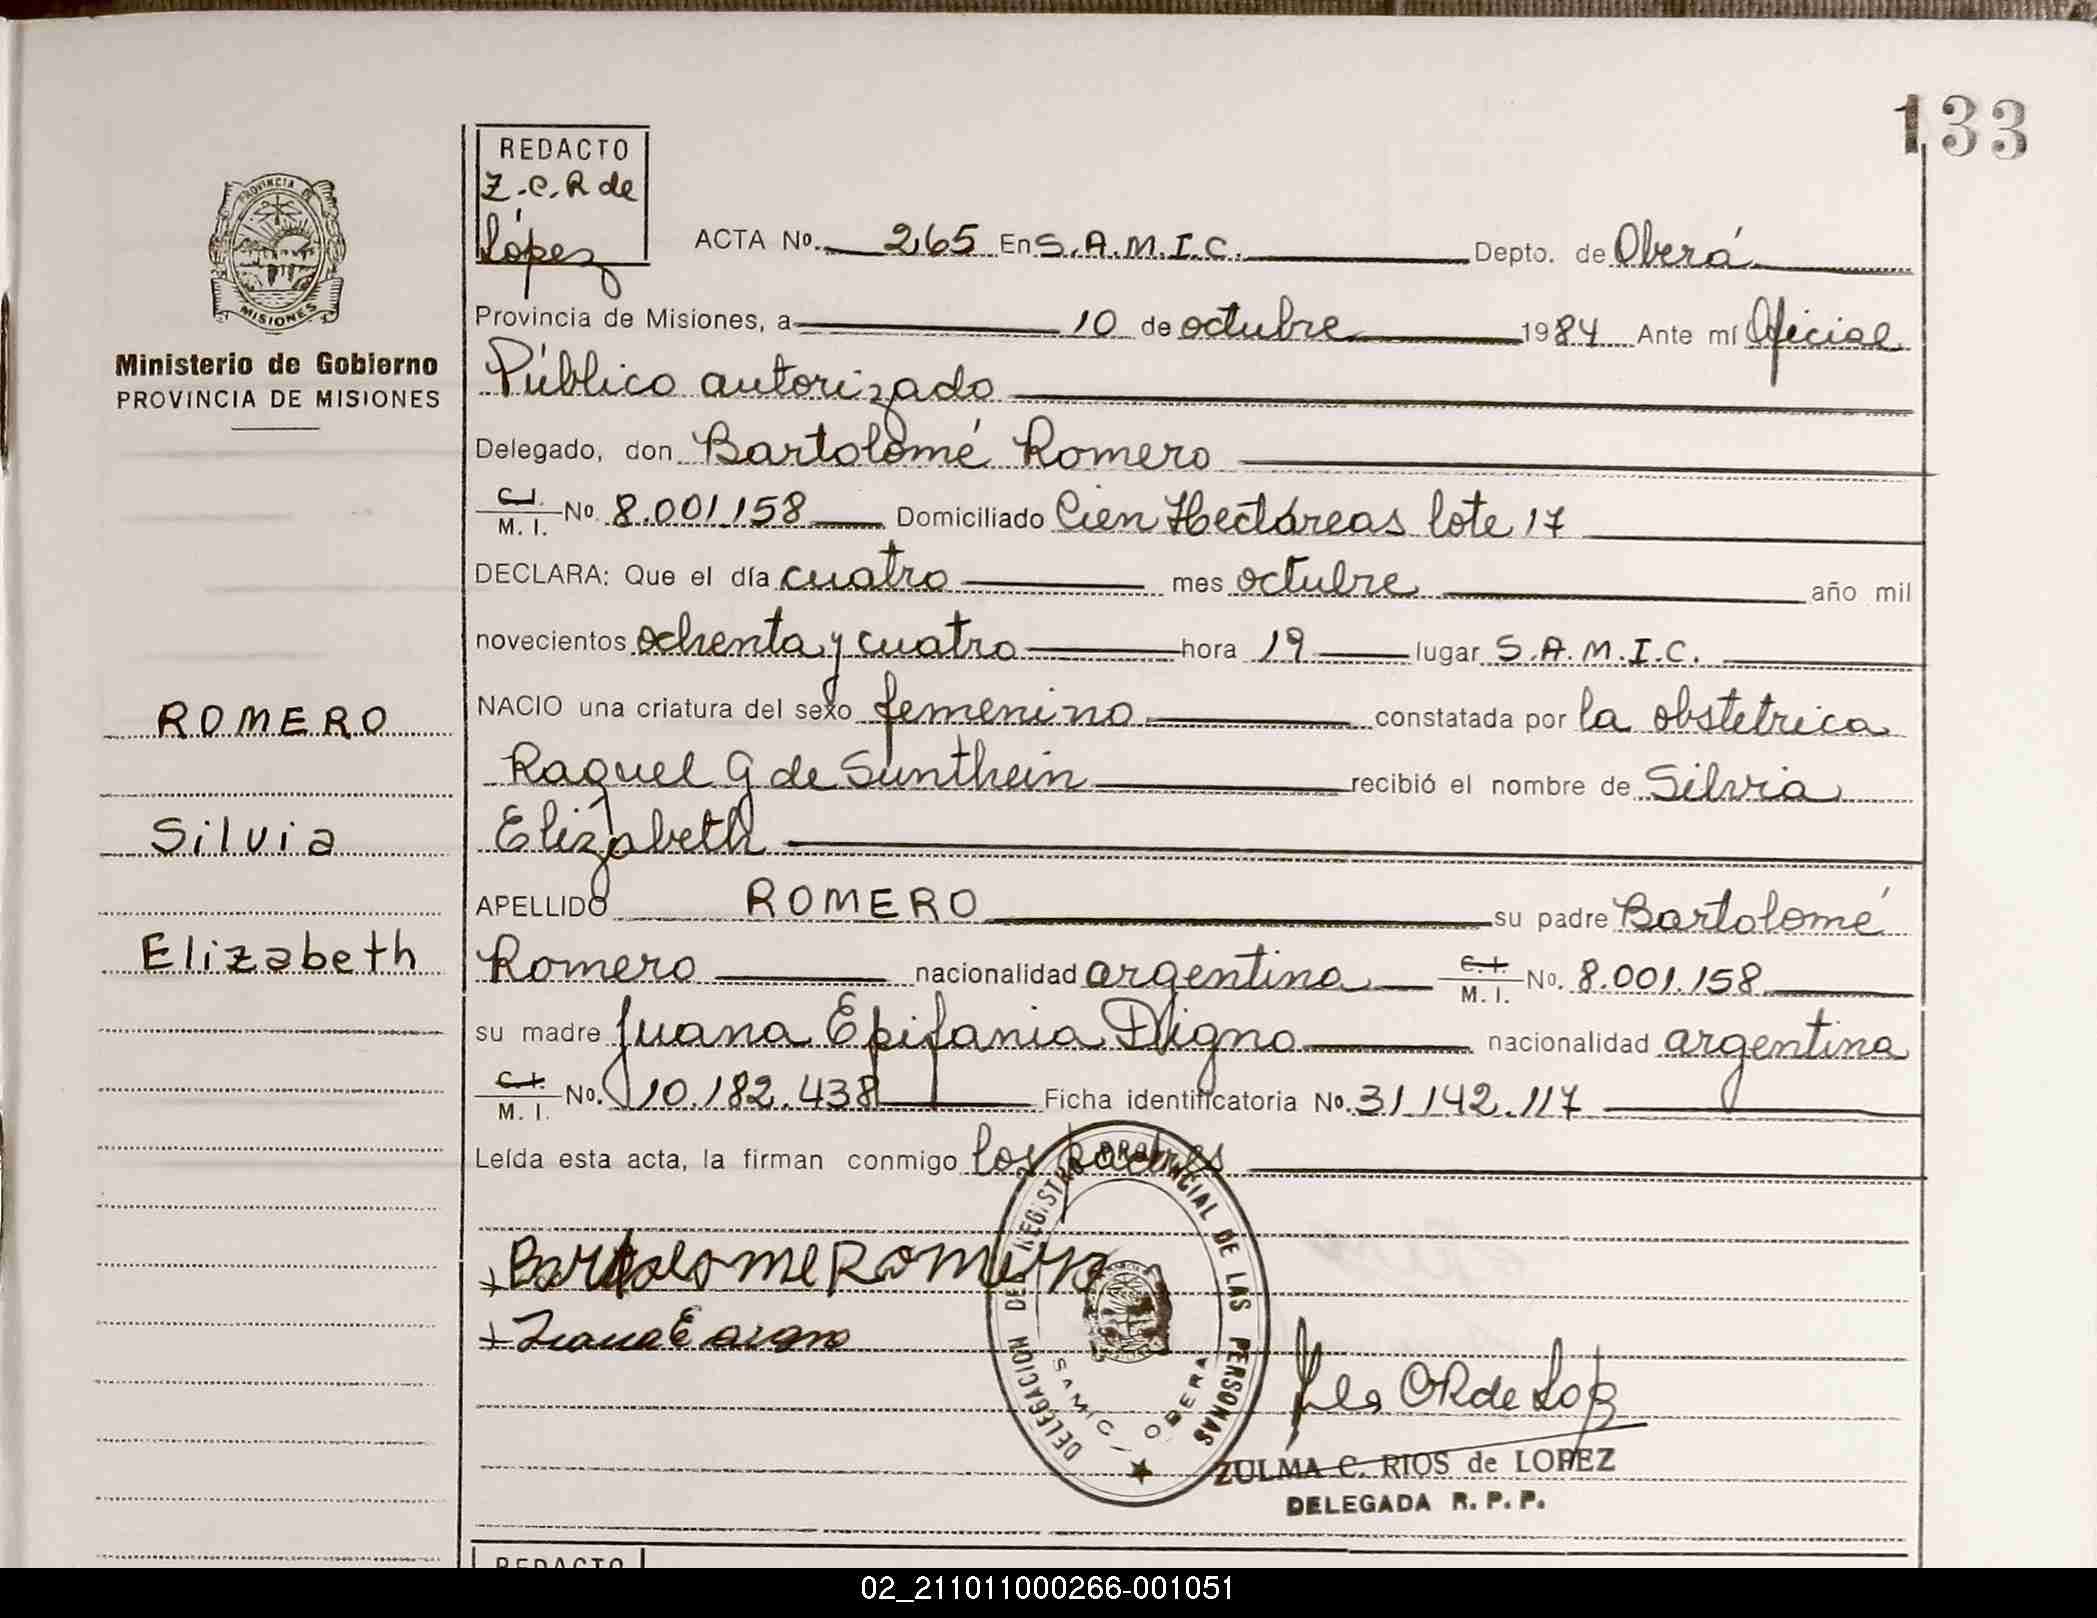 133
REDACTO
Z.C.R de
López
PROVINCIA DE
MISIONES
Ministerio de Gobierno
PROVINCIA DE MISIONES
ACTA No. 265 En S.A.M.I.C. Depto. de Oberá
Provincia de Misiones, a 10 de octubre 1984 Ante mí Oficial
Público autorizado
Delegado, don Bartolomé Romero
C.I. / M. I. No. 8.001.158 Domiciliado Cien Hectáreas lote 17
DECLARA: Que el día cuatro mes octubre año mil
novecientos ochenta y cuatro hora 19 lugar S.A.M.I.C.
NACIO una criatura del sexo femenino constatada por la obstetrica
Raquel G de Sunthein recibió el nombre de Silvia
Elizabeth
APELLIDO ROMERO su padre Bartolomé
Romero nacionalidad argentina C.I. / M. I. No. 8.001.158
su madre Juana Epifania Digno nacionalidad argentina
C.I. / M. I. No. 10.182.438 Ficha identificatoria No. 31.142.117
Leída esta acta, la firman conmigo los padres
ROMERO
Silvia
Elizabeth
Bartolome Romero
Juana E
DELEGACION DEL REGISTRO PROVINCIAL DE LAS PERSONAS
SAMIC - OBERA
ZULMA C. RIOS de LOPEZ
DELEGADA R. P. P.
REDACTO
02_211011000266-001051